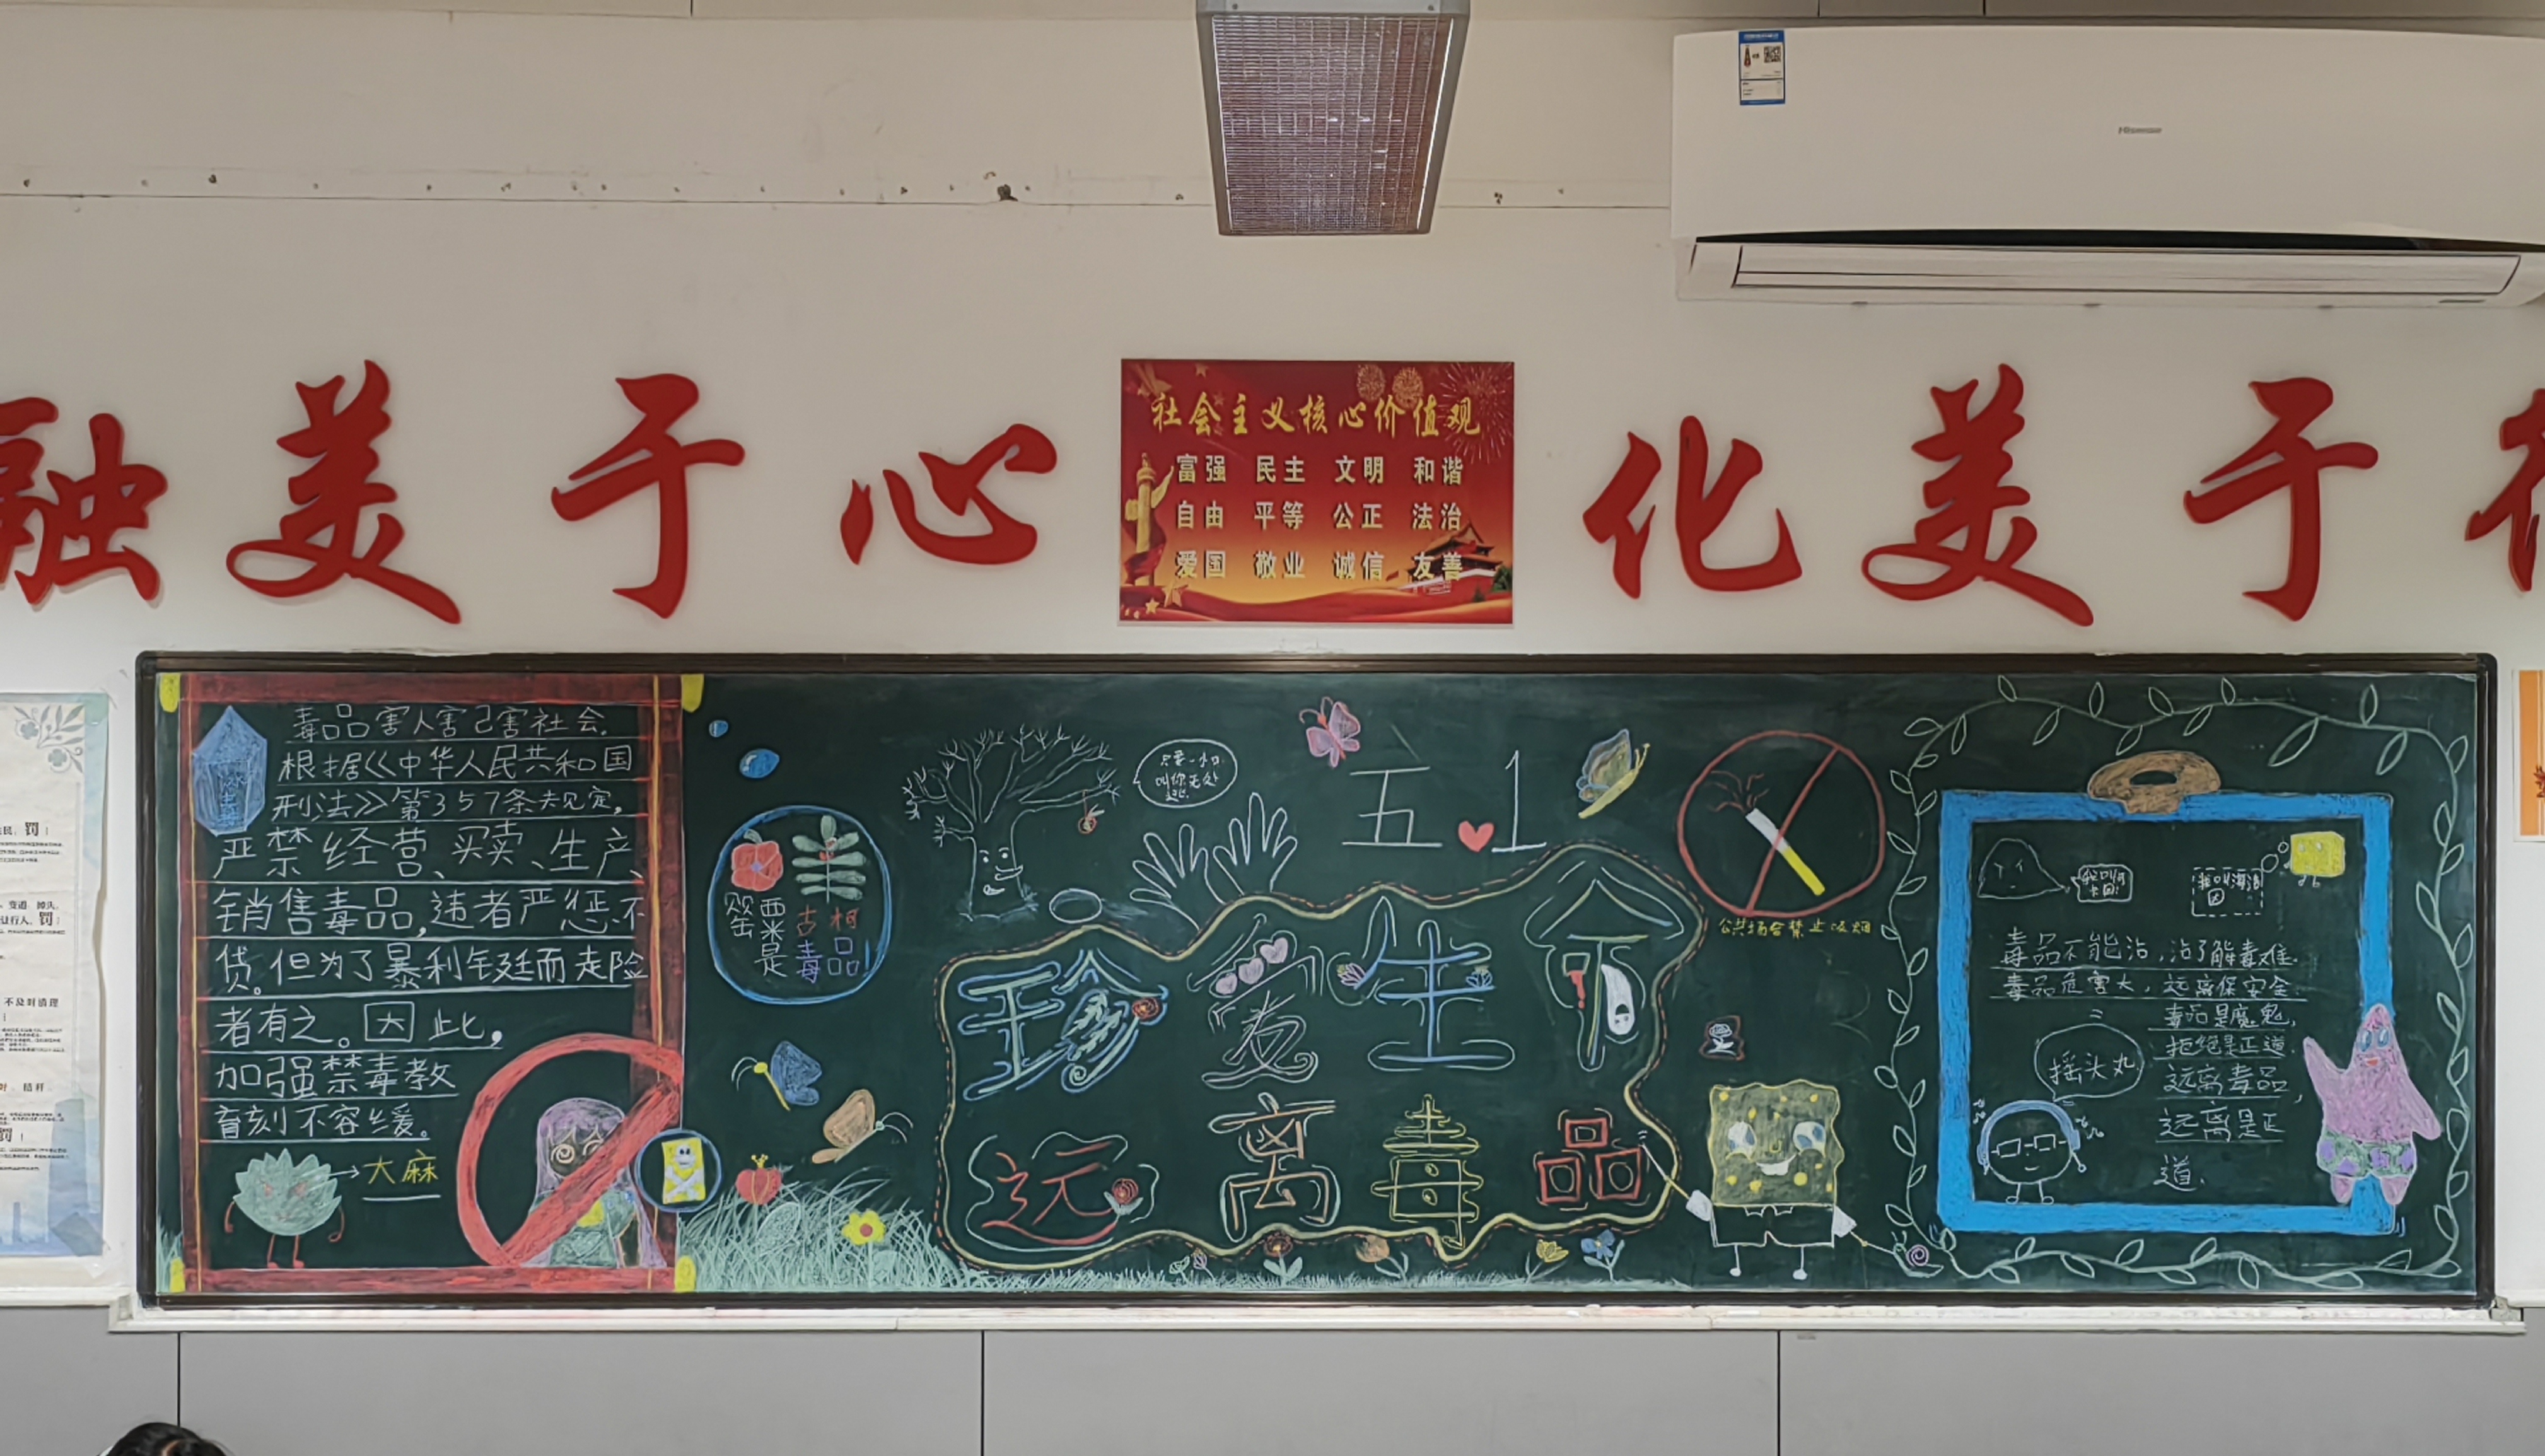 Hisense
融美于心
化美于
社会主义核心价值观
富强 民主 文明 和谐
自由 平等 公正 法治
爱国 敬业 诚信 友善
毒品害人害己害社会.
根据《中华人民共和国
刑法》第357条规定,
严禁经营、买卖、生产、
销售毒品,违者严惩不
贷。但为了暴利铤而走险
者有之。因此,
加强禁毒教
育刻不容缓。
大麻
罂 西 古柯
米
是 毒品!
只要一小口
叫你无处
逃.
五 1
珍爱生命
远离毒品
公共场合禁止吸烟
我叫可
卡因!
我叫海洛
因
毒品不能沾,沾了解毒难.
毒品危害大,远离保安全.
毒品是魔鬼,
拒绝是正道.
远离毒品,
远离是正
道.
摇头丸
罚
罚
不及时清理
罚